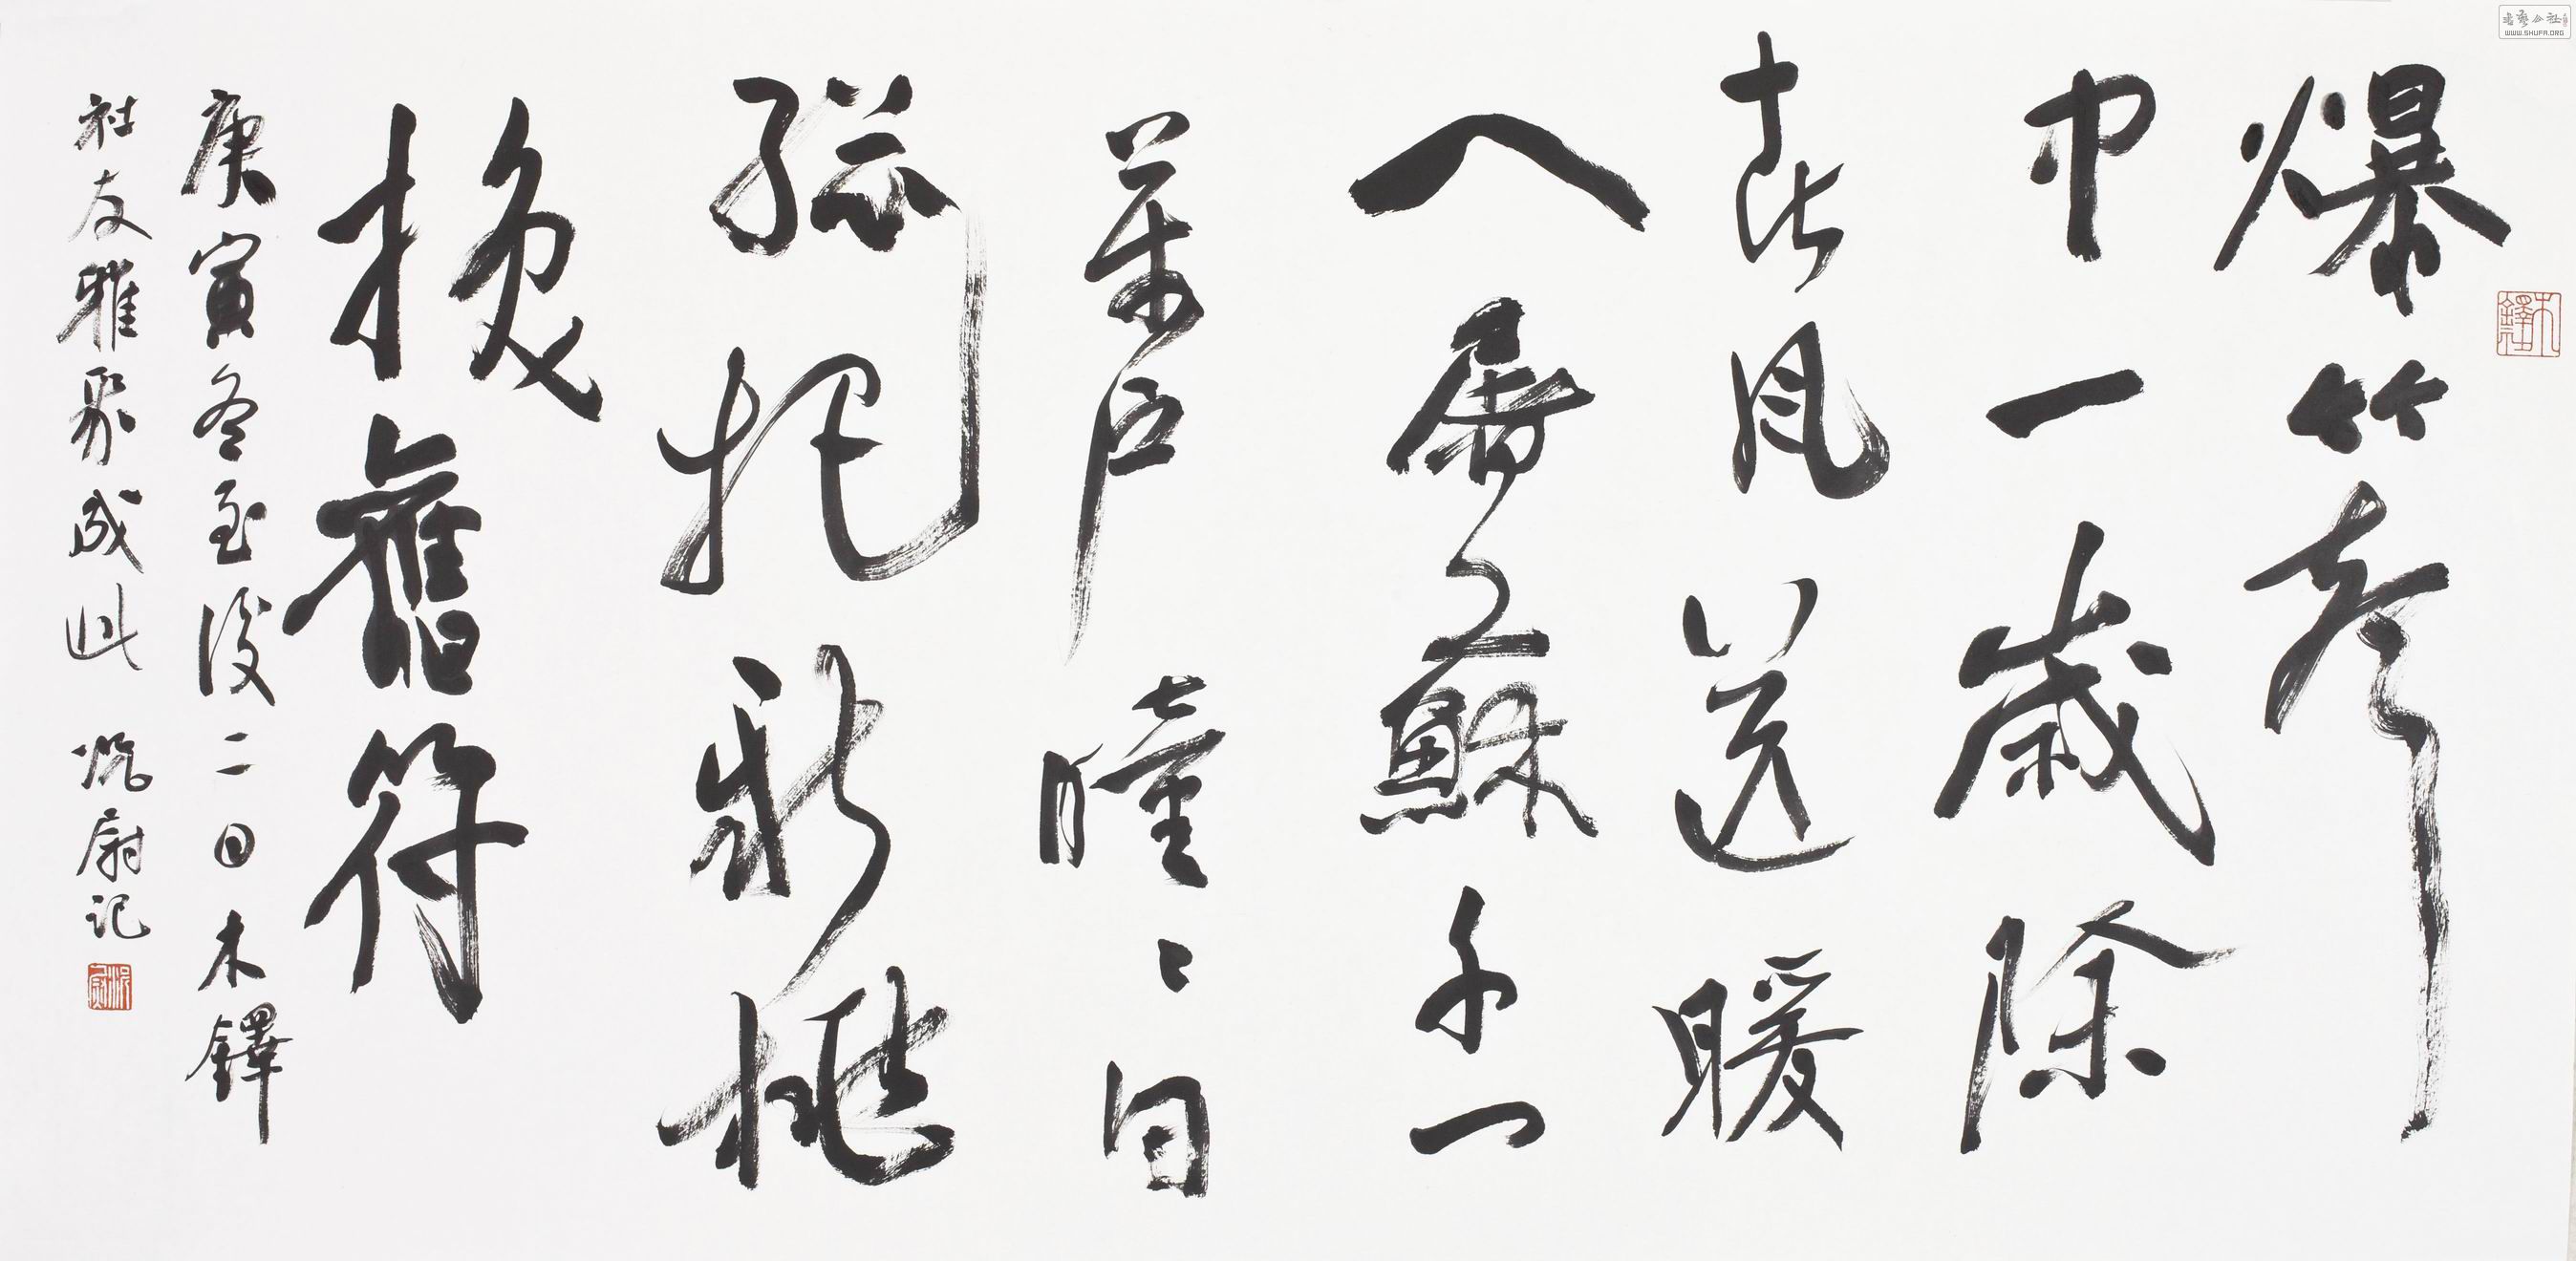 書藝公社
WWW.SHUFA.ORG
木鐸
爆竹聲
中一歲除
春風送暖
入屠蘇千門
萬戶曈々日
總把新桃
換舊符
庚寅冬至後二日木鐸
社友雅聚成此 尉记